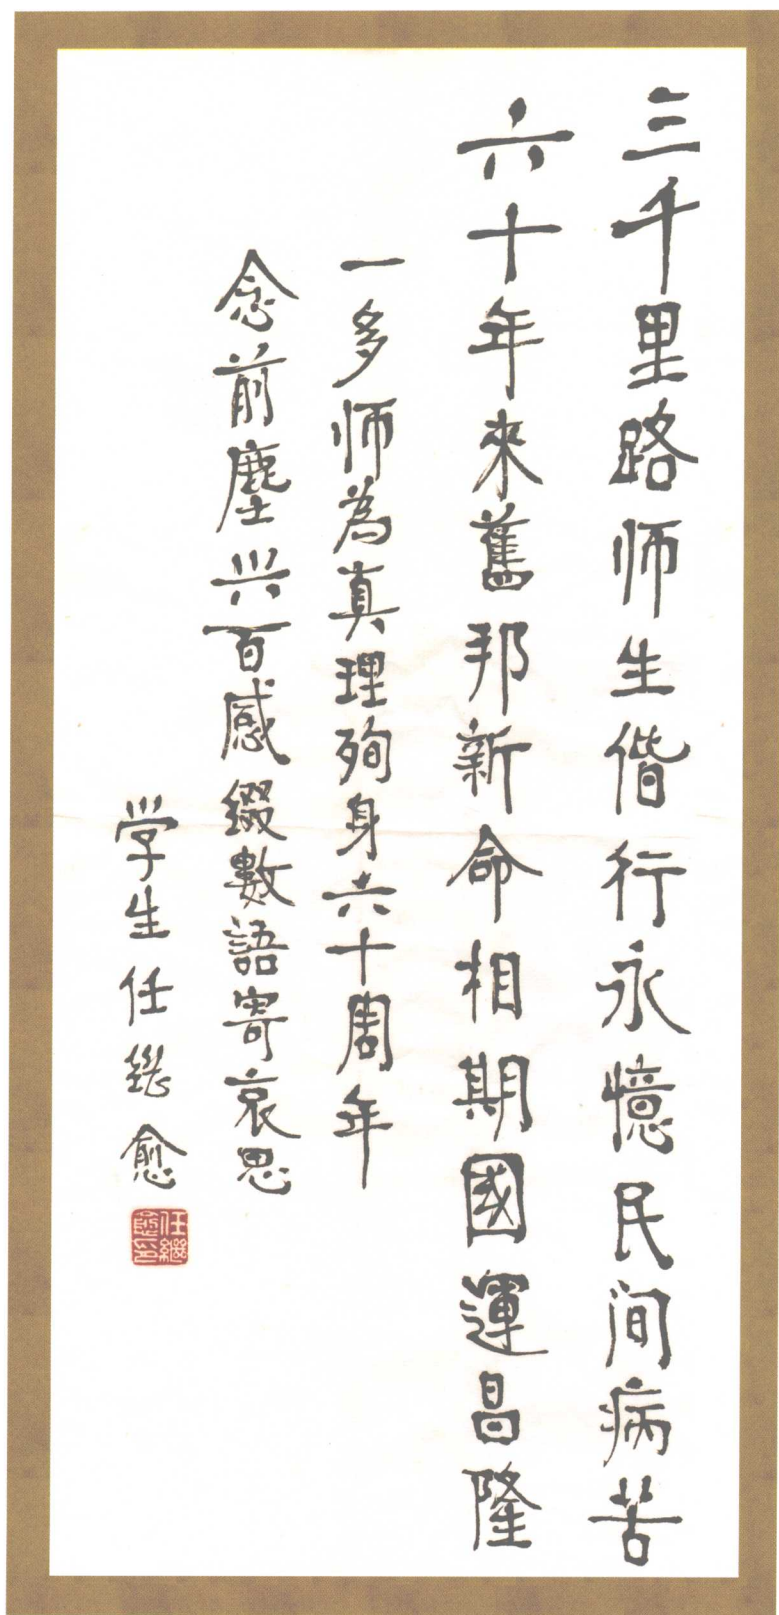 三千里路师生偕行永憶民间病苦
六十年來舊邦新命相期國運昌隆
一多师為真理殉身六十周年
念前塵兴百感綴數語寄哀思
学生任继愈
任繼愈印